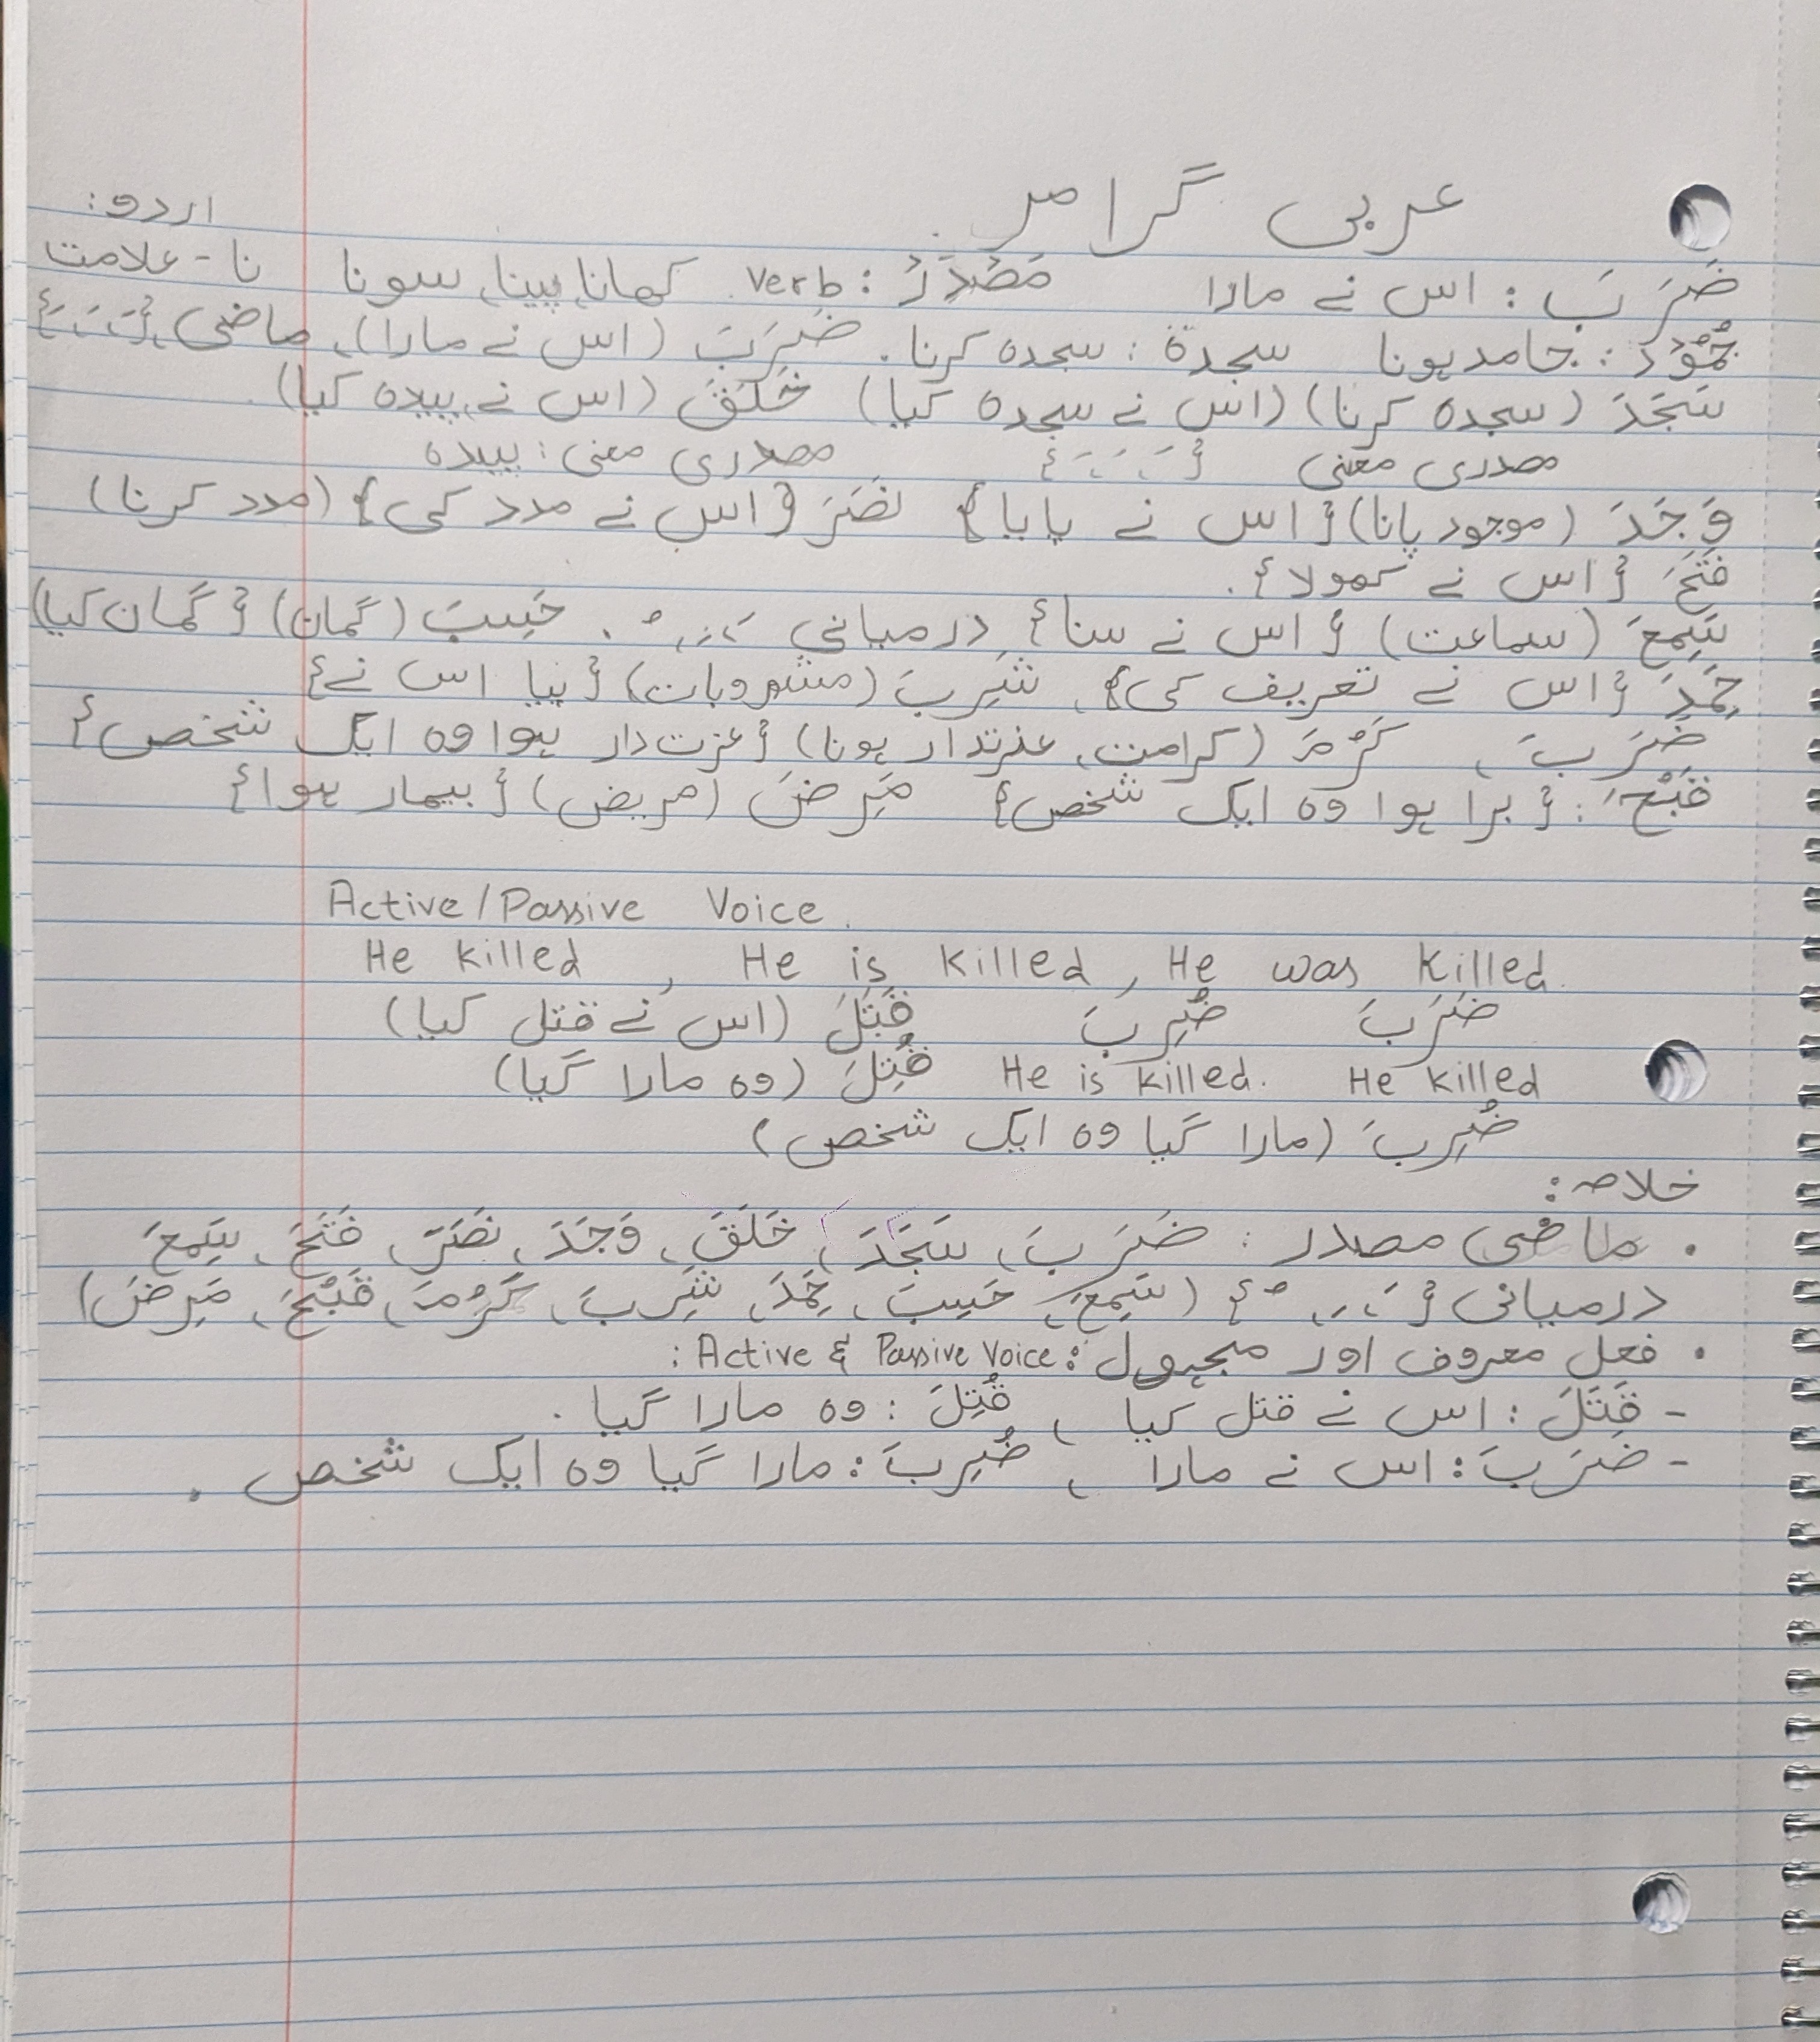 عربی گرامر
اردو:
ضَرَبَ : اس نے مارا مَصْدَرْ : verb کھانا، پینا، سونا نا - علامت
جُمُوْدْ : جامد ہونا سجدۃ : سجدہ کرنا . ضَرَبَ (اس نے مارا)، ماضی {َ َ َ}
سَجَدَ (سجدہ کرنا) (اس نے سجدہ کیا) خَلَقَ (اس نے پیدہ کیا) .
مصدری معنی {َ َ َ} مصدری معنی : پیدہ
وَجَدَ (موجود پانا) {اس نے پایا} نَصَرَ {اس نے مدد کی} (مدد کرنا)
فَتَحَ {اس نے کھولا} .
سَمِعَ (سماعت) {اس نے سنا} درمیانی َ ، ِ ، ُ . حَسِبَ (گمان) {گمان کیا}
حَمِدَ {اس نے تعریف کی}، شَرِبَ (مشروبات) {پیا اس نے}
ضَرَبَ ، كَرُمَ (کرامت، عذرتدار ہونا) {عزت دار ہوا وہ ایک شخص}
قَبُحَ : {برا ہوا وہ ایک شخص} مَرِضَ (مریض) {بیمار ہوا}
Active/Passive Voice.
He killed , He is killed , He was killed.
ضَرَبَ ضُرِبَ قَتَلَ (اس نے قتل کیا)
He killed He is killed. قُتِلَ (وہ مارا گیا)
ضُرِبَ (مارا گیا وہ ایک شخص)
خلاصہ :
. ماضی مصدر : ضَرَبَ، سَجَدَ، خَلَقَ، وَجَدَ، نَصَرَ، فَتَحَ، سَمِعَ
درمیانی {َ ، ِ ، ُ} (سَمِعَ، حَسِبَ، حَمِدَ، شَرِبَ، كَرُمَ، قَبُحَ، مَرِضَ)
. فعل معروف اور مجہول : Active & Passive Voice :
- قَتَلَ : اس نے قتل کیا ، قُتِلَ : وہ مارا گیا .
- ضَرَبَ : اس نے مارا ، ضُرِبَ : مارا گیا وہ ایک شخص .